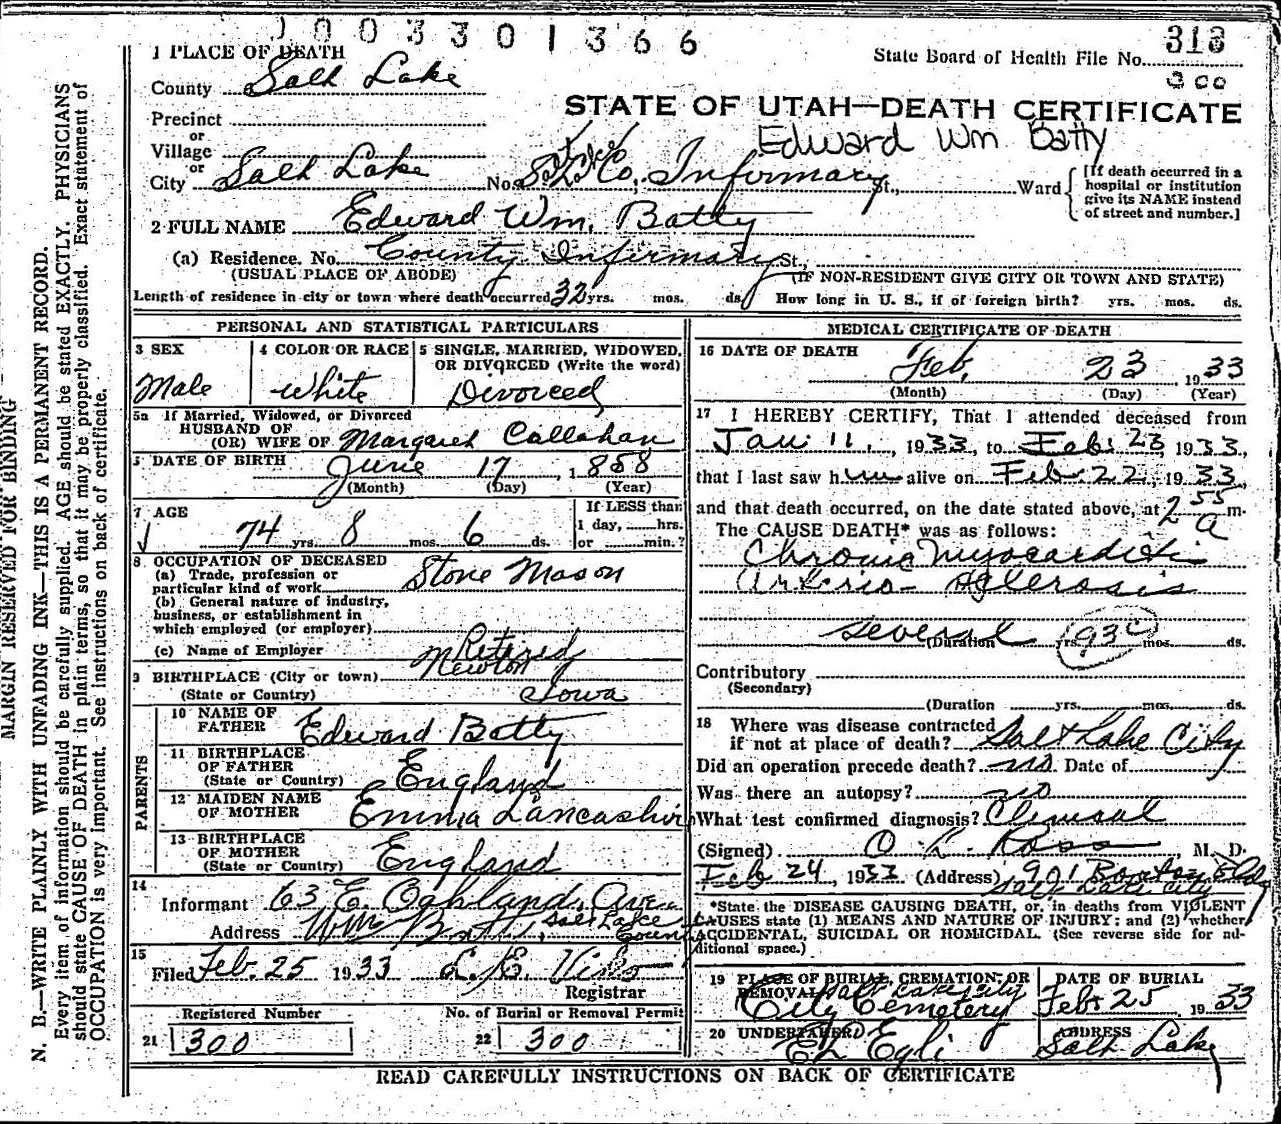 1003301366
1 PLACE OF DEATH
State Board of Health File No. 318
300
County Salt Lake
STATE OF UTAH—DEATH CERTIFICATE
Precinct
or
Village
Edward Wm Batty
or
City Salt Lake No. S. L. Co. Infirmary St., Ward
[If death occurred in a hospital or institution give its NAME instead of street and number.]
2 FULL NAME Edward Wm. Batty
(a) Residence. No. County Infirmary St.,
(USUAL PLACE OF ABODE) (IF NON-RESIDENT GIVE CITY OR TOWN AND STATE)
Length of residence in city or town where death occurred 32 yrs. mos. ds. How long in U. S., if of foreign birth? yrs. mos. ds.
PERSONAL AND STATISTICAL PARTICULARS
3 SEX
Male
4 COLOR OR RACE
White
5 SINGLE, MARRIED, WIDOWED,
OR DIVORCED (Write the word)
Divorced
5a If Married, Widowed, or Divorced
HUSBAND OF
(OR) WIFE OF Margaret Callahan
DATE OF BIRTH June 17 1858
(Month) (Day) (Year)
7 AGE
74 yrs. 8 mos. 6 ds.
If LESS than
1 day, hrs.
or min.?
8 OCCUPATION OF DECEASED
(a) Trade, profession or
particular kind of work Stone Mason
(b) General nature of industry,
business, or establishment in
which employed (or employer)
Retired
(c) Name of Employer
9 BIRTHPLACE (City or town) Newton
(State or Country) Iowa
PARENTS
10 NAME OF
FATHER Edward Batty
11 BIRTHPLACE
OF FATHER England
(State or Country)
12 MAIDEN NAME
OF MOTHER Emma Lancashir
13 BIRTHPLACE
OF MOTHER England
(State or Country)
14
Informant 63 E. Oakland Ave
Address Wm Batty, Salt Lake
County
15
Filed Feb. 25 1933
Registrar
Registered Number No. of Burial or Removal Permit
21 300 22 300
MEDICAL CERTIFICATE OF DEATH
16 DATE OF DEATH
Feb. 23 1933
(Month) (Day) (Year)
17 I HEREBY CERTIFY, That I attended deceased from
Jan. 11, 1933, to Feb. 23 1933,
that I last saw him alive on Feb. 22, 1933,
and that death occurred, on the date stated above, at 2 55 a m.
The CAUSE DEATH* was as follows:
Chronic Myocarditis
Arterio-Sclerosis
several (Duration yrs. 93c mos. ds.
Contributory
(Secondary)
(Duration yrs. mos. ds.
18 Where was disease contracted
if not at place of death? Salt Lake City
Did an operation precede death? no Date of
Was there an autopsy? no
What test confirmed diagnosis? Clinical
(Signed) O. L. Ross, M. D.
Feb 24, 1933 (Address) 901 Boston Bldg
Salt Lake City
*State the DISEASE CAUSING DEATH, or, in deaths from VIOLENT
CAUSES state (1) MEANS AND NATURE OF INJURY; and (2) whether
ACCIDENTAL, SUICIDAL OR HOMICIDAL. (See reverse side for ad-
ditional space.)
19 PLACE OF BURIAL, CREMATION, OR
REMOVAL Salt Lake City
City Cemetery
DATE OF BURIAL
Feb. 25 1933
20 UNDERTAKER
E L Egli
ADDRESS
Salt Lake
READ CAREFULLY INSTRUCTIONS ON BACK OF CERTIFICATE
MARGIN RESERVED FOR BINDING
N. B.—WRITE PLAINLY WITH UNFADING INK—THIS IS A PERMANENT RECORD.
Every item of information should be carefully supplied. AGE should be stated EXACTLY. PHYSICIANS
should state CAUSE OF DEATH in plain terms, so that it may be properly classified. Exact statement of
OCCUPATION is very important. See instructions on back of certificate.